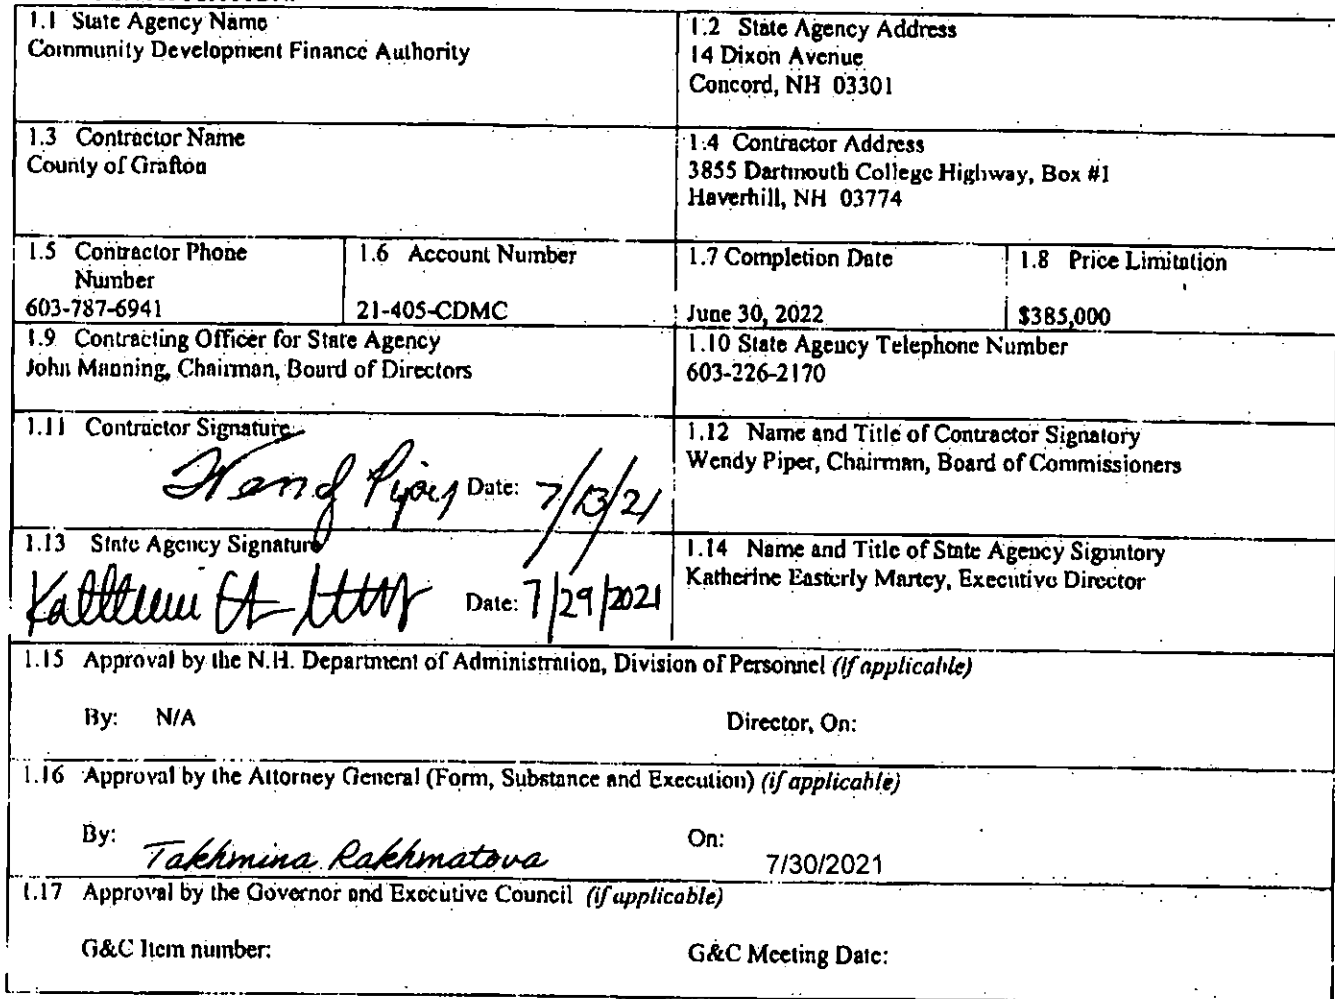 1.1 State Agency Name
Community Development Finance Authority
1.2 State Agency Address
14 Dixon Avenue
Concord, NH 03301
1.3 Contractor Name
County of Grafton
1.4 Contractor Address
3855 Dartmouth College Highway, Box #1
Haverhill, NH 03774
1.5 Contractor Phone
Number
603-787-6941
1.6 Account Number
21-405-CDMC
1.7 Completion Date
June 30, 2022
1.8 Price Limitation
$385,000
1.9 Contracting Officer for State Agency
John Manning, Chairman, Board of Directors
1.10 State Agency Telephone Number
603-226-2170
1.11 Contractor Signature
Wendy Piper Date: 7/13/21
1.12 Name and Title of Contractor Signatory
Wendy Piper, Chairman, Board of Commissioners
1.13 State Agency Signature
Date: 7/29/2021
1.14 Name and Title of State Agency Signatory
Katherine Easterly Martey, Executive Director
1.15 Approval by the N.H. Department of Administration, Division of Personnel (if applicable)
By: N/A Director, On:
1.16 Approval by the Attorney General (Form, Substance and Execution) (if applicable)
By: Takhmina Rakhmatova On: 7/30/2021
1.17 Approval by the Governor and Executive Council (if applicable)
G&C Item number: G&C Meeting Date: